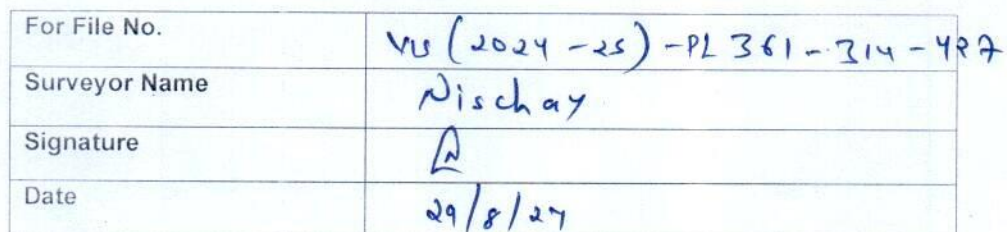 For File No. VIS (2024-25)-PL361-314-427
Surveyor Name Nischay
Signature
Date 29/8/24